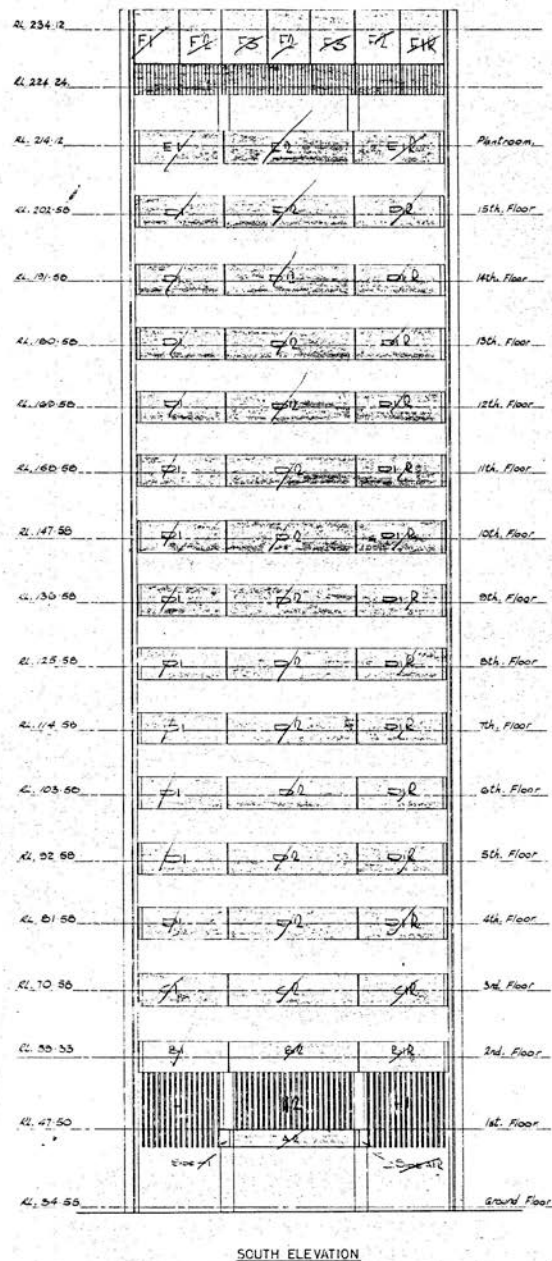 RL 234·12
F1 F2 F3 F2 F3 F2 F1R
RL 224·24
RL. 214·12 E1 E2 E1R Plantroom.
RL. 202·58 D1 D2 D1R 15th. Floor
RL. 191·58 D1 D2 D1R 14th. Floor
RL. 180·58 D1 D2 D1R 13th. Floor
RL. 169·58 D1 D2 D1R 12th. Floor
RL. 158·58 D1 D2 D1R 11th. Floor
RL. 147·58 D1 D2 D1R 10th. Floor
RL. 136·58 D1 D2 D1R 9th. Floor
RL. 125·58 D1 D2 D1R 8th. Floor
RL. 114·58 D1 D2 D1R 7th. Floor
RL. 103·58 D1 D2 D1R 6th. Floor
RL. 92·58 D1 D2 D1R 5th. Floor
RL. 81·58 D1 D2 D1R 4th. Floor
RL. 70·58 C1 C2 C1R 3rd. Floor
RL. B1 B2 B1R 2nd. Floor
H1 H2 H1
RL. 47·50 1st. Floor
A2
SIDE A1 SIDE A1R
RL. 34·58 Ground Floor
SOUTH ELEVATION